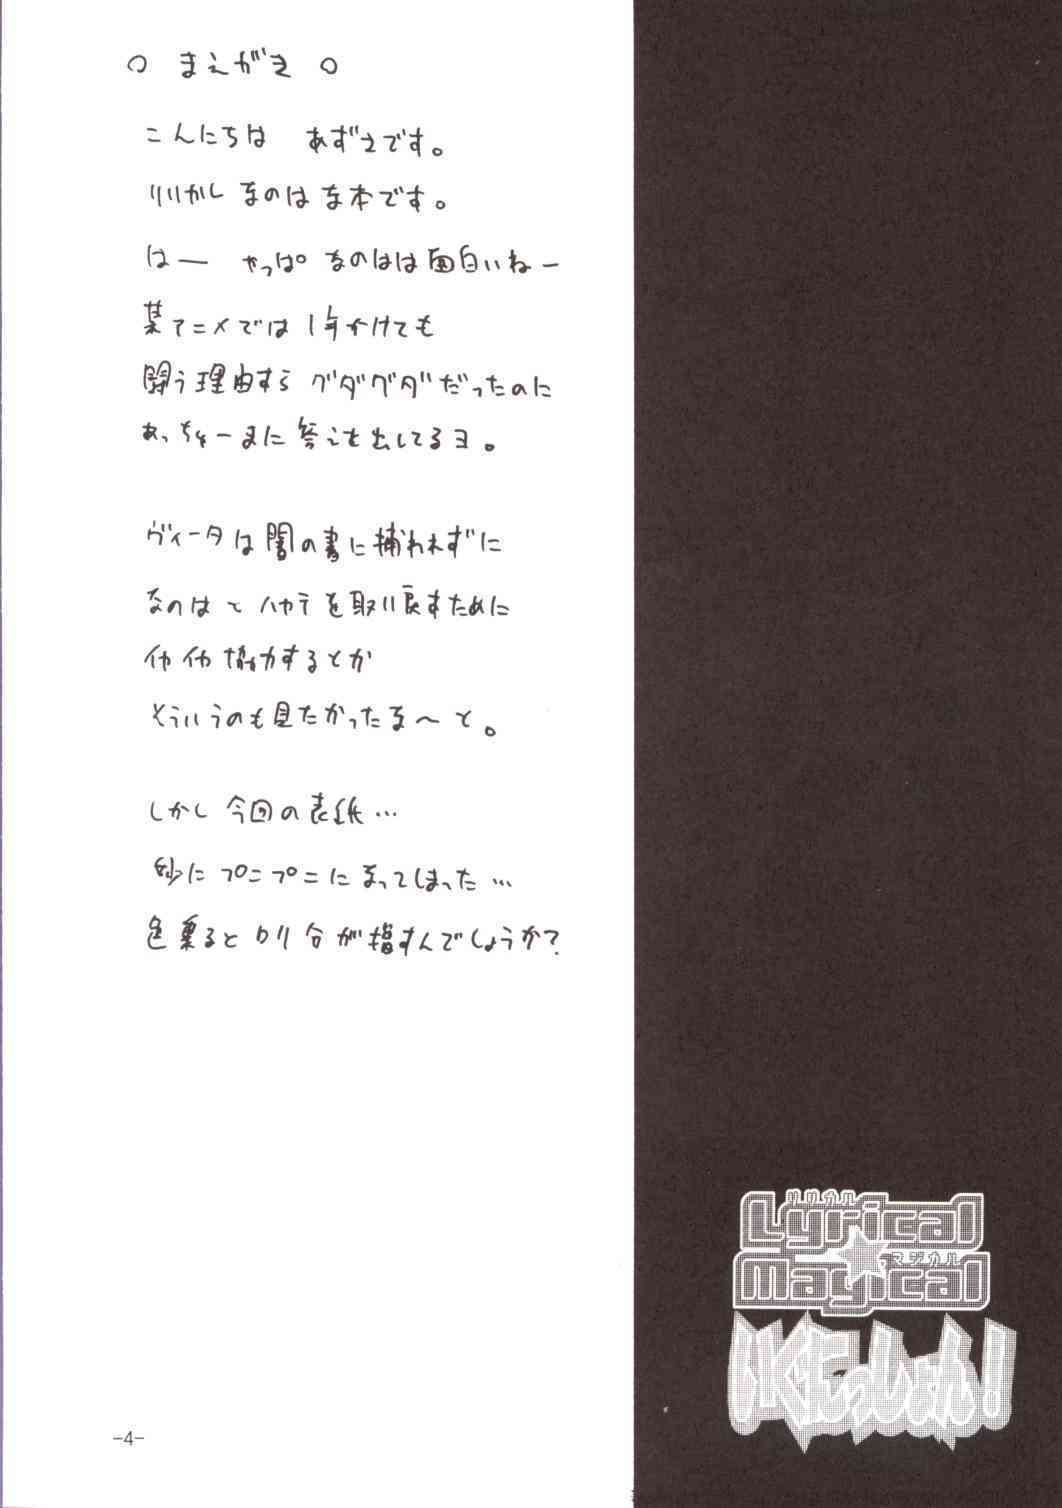 ○ まえがき ○
こんにちは あずまです。
リリカル なのは な本です。
はー やっぱ なのはは面白いねー
某アニメでは 1年かけても
闘う理由すら グダグダだったのに
あっちゅーまに 答えを出してるヨ。
ヴィータは闇の書に捕われずに
なのは と ハヤテ を取り戻すために
イヤイヤ協力するとか
そういうのも見たかったな〜と。
しかし 今回の表紙…
妙に プニプニになってしまった…
色塗ると ロリ分が増すんでしょうか?
リリカル
Lyrical
マジカル
Magical
-4-